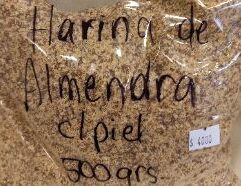 Harina de
Almendra
c/piel
500grs
$ 4000